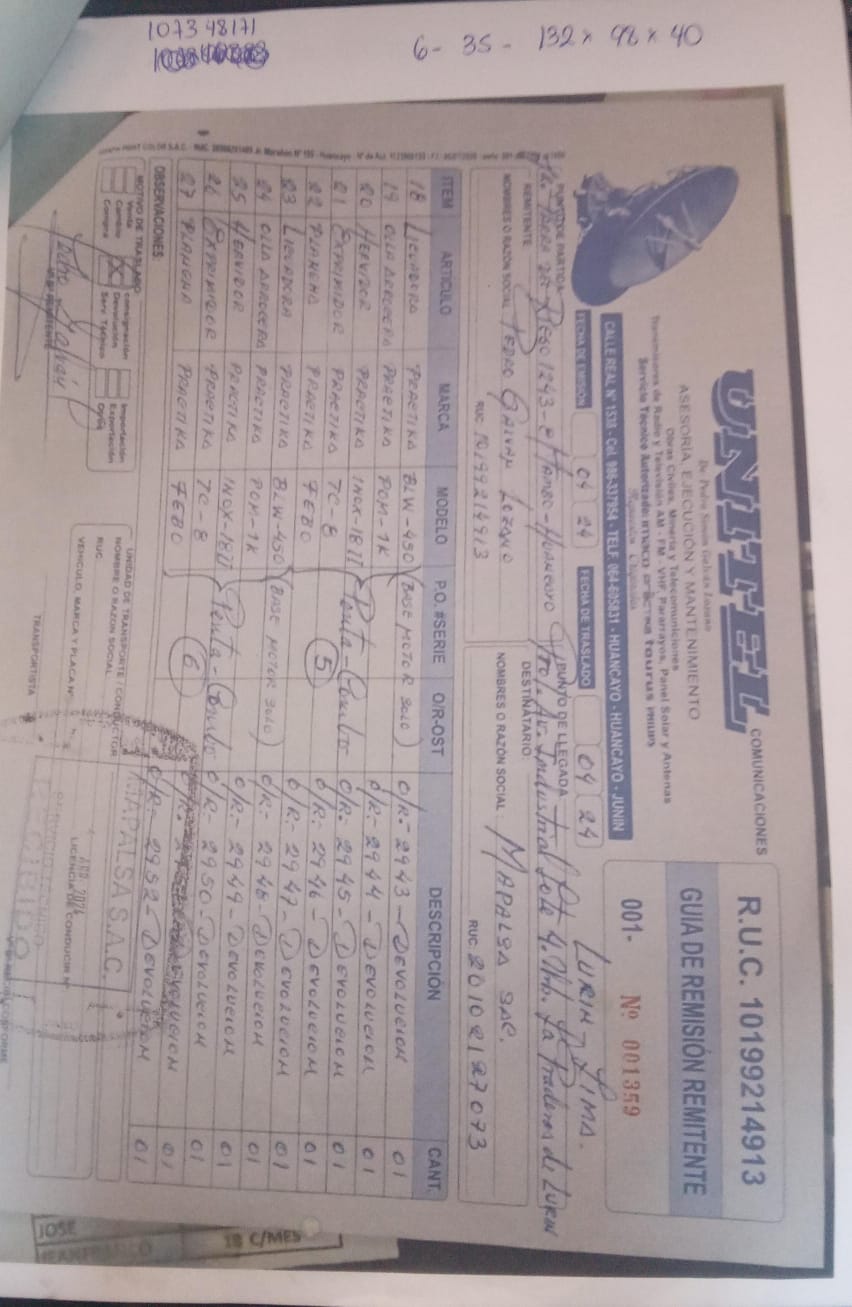 107348171
6- 35 - 132 x 98 x 40
UNITEL COMUNICACIONES
De Pedro Simón Galván Lozano
ASESORÍA, EJECUCIÓN Y MANTENIMIENTO
Obras Civiles, Minería y Telecomunicaciones
Transmisores de Radio y Televisión AM - FM - VHF, Pararrayos, Panel Solar y Antenas
Servicio Técnico Autorizado: IMACO PRACTIKA taurus PHILIPS
CALLE REAL N° 1538 - Cel. 986-337954 - TELF. 064-605831 - HUANCAYO - HUANCAYO - JUNIN
R.U.C. 10199214913
GUIA DE REMISIÓN REMITENTE
001- Nº 001359
FECHA DE EMISIÓN 04 24
FECHA DE TRASLADO 04 24
LURIN - LIMA.
PUNTO DE PARTIDA
1243 - El Tambo - Huancayo
PUNTO DE LLEGADA
Av. Industrial Lote 4. Urb. La Praderas de Lurin
REMITENTE
NOMBRES O RAZÓN SOCIAL PEDRO GALVAN LOZANO
RUC 10199214913
DESTINATARIO
NOMBRES O RAZÓN SOCIAL MAPALSA SAC.
RUC 20102187073
ITEM ARTICULO MARCA MODELO P.O. #SERIE O/R-OST DESCRIPCIÓN CANT.
18 LICUADORA PRACTIKA BLW-450 (BASE MOTOR SOLO) O/R:- 2943 - DEVOLUCION 01
19 OLLA ARROCERA PRACTIKA POM-1K O/R:- 2944 - DEVOLUCION 01
20 HERVIDOR PRACTIKA INOX-18II O/R:- 2945 - DEVOLUCION 01
21 EXPRIMIDOR PRACTIKA TC-8 O/R:- 2946 - DEVOLUCION 01
22 PLANCHA PRACTIKA FEBO 5 O/R:- 2947 - DEVOLUCION 01
23 LICUADORA PRACTIKA BLW-450 (BASE MOTOR SOLO) O/R:- 2948 - DEVOLUCION 01
24 OLLA ARROCERA PRACTIKA POM-1K O/R:- 2949 - DEVOLUCION 01
25 HERVIDOR PRACTIKA INOX-18II O/R:- 2950 - DEVOLUCION 01
26 EXPRIMIDOR PRACTIKA TC-8 DEVOLUCION 01
27 PLANCHA PRACTIKA FEBO 6 O/R:- 2952 - DEVOLUCION 01
OBSERVACIONES
MOTIVO DE TRASLADO
Venta
Cambio
Compra
consignación
Devolución
Serv. Técnico
Importación
Exportación
Otros
UNIDAD DE TRANSPORTE / CONDUCTOR
NOMBRE O RAZÓN SOCIAL
RUC
VEHICULO, MARCA Y PLACA Nº
LICENCIA DE CONDUCIR Nº
TRANSPORTISTA
MAPALSA S.A.C.
SERVICIO TECNICO
RECIBIDO
Pedro Galván
JOSE
18 C/MES